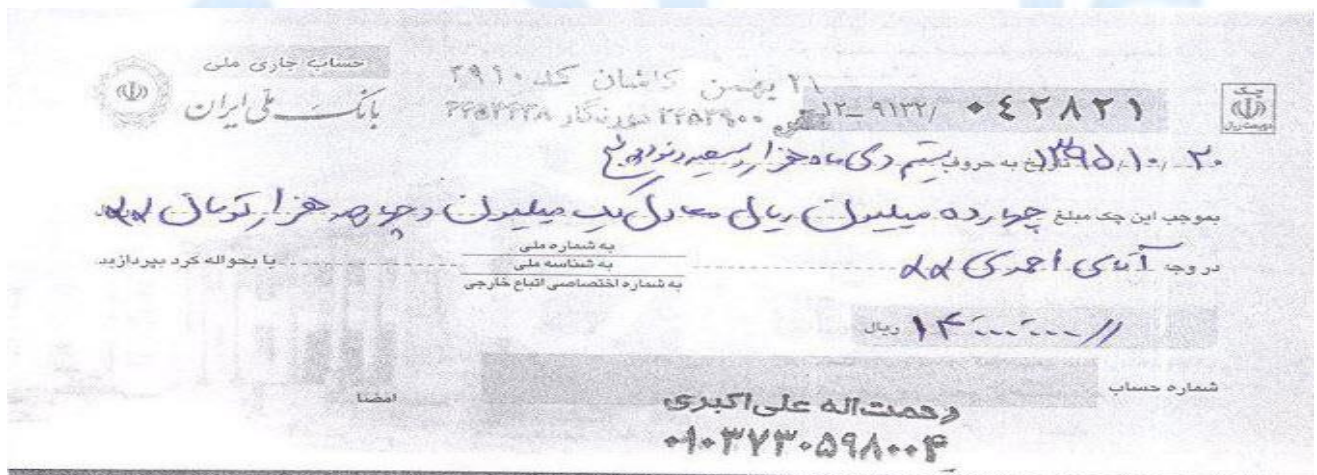 حساب جاری ملی
بانک ملی ایران
۲۱ بهمن کاشان کد ۲۹۱۰
۴۴۵۲۹۰۰ دورنگار ۴۴۵۳۴۳۸
۱۲_۹۱۳۲/ ۰۴۲۸۲۱
چک
دویست ریال
۱۳۹۵/۱۰/۲۰ تاریخ به حروف بیستم دی ماه هزار و سیصد و نود و پنج
بموجب این چک مبلغ چهارده میلیون ریال معادل یک میلیون و چهارصد هزار تومان
در وجه آقای احمدی
به شماره ملی
به شناسه ملی
به شماره اختصاصی اتباع خارجی
یا بحواله کرد بپردازید
۱۴۰۰۰۰۰۰// ریال
شماره حساب
امضا
رحمت اله علی اکبری
۰۱۰۳۷۳۰۵۹۸۰۰۴